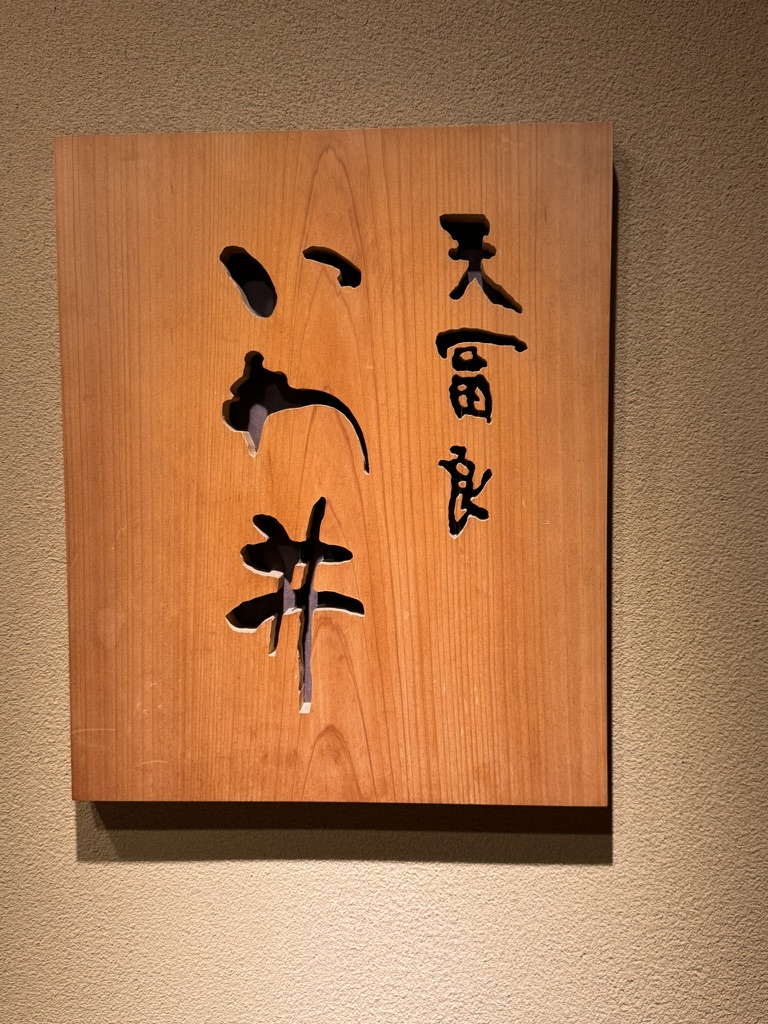 天冨良
いわ井